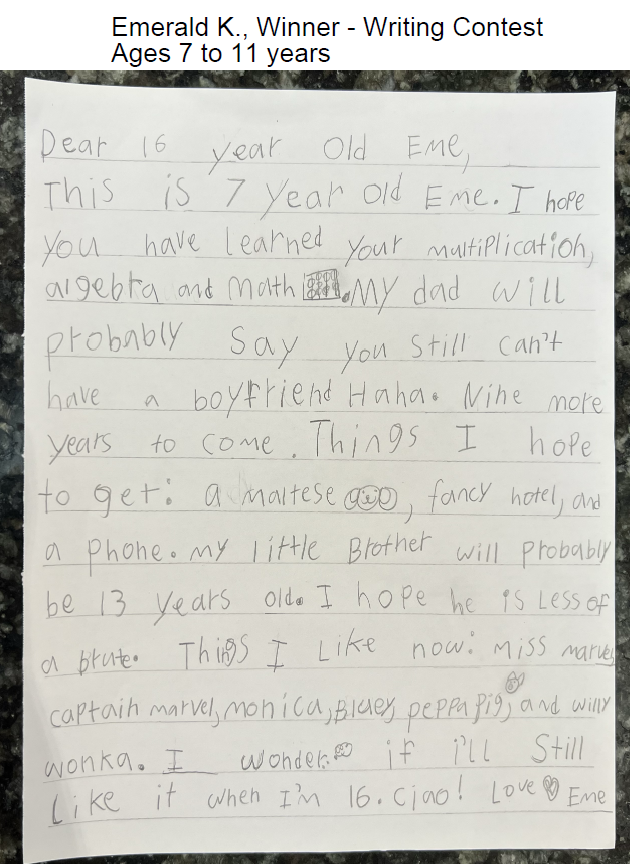 Emerald K., Winner - Writing Contest
Ages 7 to 11 years
Dear 16 year Old Eme,
This is 7 year old Eme. I hope
you have learned your multiplication,
algebra and math. My dad will
probably say you still can't
have a boyfriend Haha. Nine more
years to come. Things I hope
to get: a maltese, fancy hotel, and
a phone. my little Brother will probably
be 13 years old. I hope he is Less of
a brute. Things I Like now: Miss marvel,
captain marvel, monica, Bluey, peppa pig, and willy
wonka. I wonder if i'll Still
Like it when I'm 16. Ciao! Love Eme